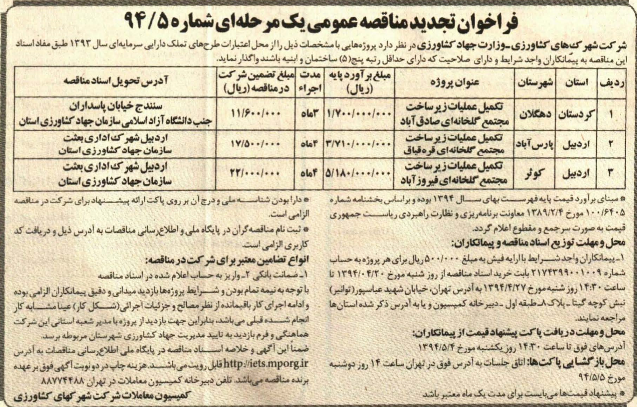 فراخوان تجدید مناقصه عمومی یک مرحله‌ای شماره ۹۴/۵
شرکت شهرک‌های کشاورزی-وزارت جهاد کشاورزی در نظر دارد پروژه‌هایی با مشخصات ذیل را از محل اعتبارات طرح‌های تملک دارایی سرمایه‌ای سال ۱۳۹۳ طبق مفاد اسناد
این مناقصه به پیمانکاران واجد شرایط و دارای صلاحیت که دارای حداقل رتبه پنج(۵) ساختمان و ابنیه باشند واگذار نماید.
ردیف استان شهرستان عنوان پروژه مبلغ برآورد پایه (ریال) مدت اجراء مبلغ تضمین شرکت در مناقصه (ریال) آدرس تحویل اسناد مناقصه
۱ کردستان دهگلان تکمیل عملیات زیرساخت مجتمع گلخانه‌ای صادق آباد ۱/۷۰۰/۰۰۰/۰۰۰ ۳ماه ۱۱/۶۰۰/۰۰۰ سنندج خیابان پاسداران جنب دانشگاه آزاد اسلامی سازمان جهاد کشاورزی استان
۲ اردبیل پارس‌آباد تکمیل عملیات زیرساخت مجتمع گلخانه‌ای قره قباق ۳/۷۱۰/۰۰۰/۰۰۰ ۴ماه ۱۷/۵۰۰/۰۰۰ اردبیل شهرک اداری بعثت سازمان جهاد کشاورزی استان
۳ اردبیل کوثر تکمیل عملیات زیرساخت مجتمع گلخانه‌ای فیروزآباد ۵/۱۸۰/۰۰۰/۰۰۰ ۴ماه ۲۲/۰۰۰/۰۰۰ اردبیل شهرک اداری بعثت سازمان جهاد کشاورزی استان
* مبنای برآورد قیمت پایه فهرست بهای سال ۱۳۹۴ بوده و براساس بخشنامه شماره
۱۰۰/۶۴۰۵ مورخ ۱۳۸۹/۲/۴ معاونت برنامه‌ریزی و نظارت راهبردی ریاست جمهوری
قیمت به صورت سرجمع و مقطوع اعلام گردد.
محل و مهلت توزیع اسناد مناقصه و پیمانکاران:
۱-پیمانکاران واجد شرایط با ارایه فیش به مبلغ ۵۰۰/۰۰۰ ریال برای هر پروژه به حساب
شماره ۲۱۷۴۳۹۹۰۰۱۰۰۹ بابت خرید اسناد مناقصه از روز شنبه مورخ ۱۳۹۴/۰۴/۲۰ تا
ساعت ۱۴:۳۰ روز شنبه ۱۳۹۴/۴/۲۷ به آدرس تهران، خیابان شهید عباسپور (توانیر)
نبش کوچه گیتا-پلاک ۸-طبقه اول-دبیرخانه کمیسیون و یا به آدرس ذکر شده استان‌ها
مراجعه نمایند.
محل و مهلت دریافت پاکت پیشنهاد قیمت از پیمانکاران:
آدرس‌های فوق تا ساعت ۱۴:۳۰ روز یکشنبه مورخ ۱۳۹۴/۵/۴
محل بازگشایی پاکت‌ها: اتاق جلسات به آدرس فوق در تهران ساعت ۱۴ روز دوشنبه
۹۴/۵/۵
* پیشنهاد قیمت‌ها می‌بایست برای مدت یک ماه معتبر باشد
* دارا بودن شناسه ملی و درج آن بر روی پاکت ارائه پیشنهاد برای شرکت در مناقصه
الزامی است.
* ثبت نام مناقصه‌گران در پایگاه ملی و اطلاع‌رسانی مناقصات به آدرس ذیل و دریافت کد
کاربری الزامی است.
انواع تضامین معتبر برای شرکت در مناقصه:
۱-ضمانت بانکی ۲-واریز به حساب اعلام شده در اسناد مناقصه
با توجه به نیمه تمام بودن و شرایط پروژه‌ها بازدید میدانی و دقیق پیمانکاران الزامی بوده
و ادامه اجرای کار باقیمانده از نظر مصالح و جزئیات اجرائی (شکل کار) عینا مشابه کار
انجام شده قبلی می‌باشد، بنابراین جهت بازدید از پروژه با مدیر شعبه استانی این شرکت
هماهنگی و فرم بازدید به تایید مدیریت جهاد کشاورزی شهرستان مربوطه برسد.
ضمناً این آگهی و خلاصه اسناد مناقصه در پایگاه ملی اطلاع‌رسانی مناقصات به آدرس
http://iets.mporg.ir قابل رویت می‌باشند. هزینه چاپ در دو نوبت آگهی فوق بر عهده
برنده مناقصه می‌باشد. تلفن دبیرخانه کمیسیون معاملات در تهران ۸۸۷۷۴۴۸۸
کمیسیون معاملات شرکت شهرک‌های کشاورزی